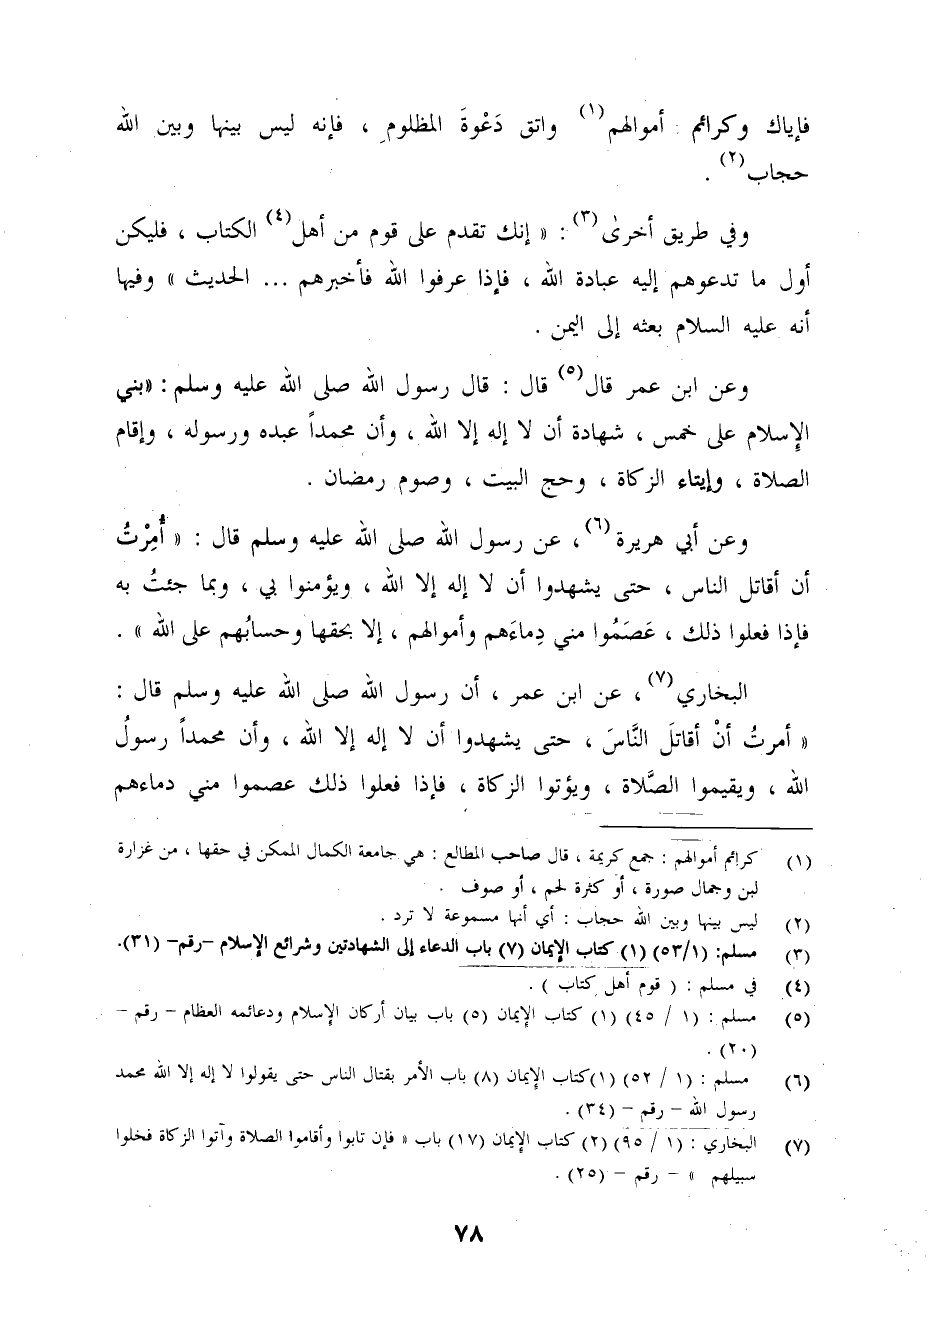 فإياك وكرائم أموالهم(١) واتق دَعْوةَ المظلومِ ، فإنه ليس بينها وبين الله
حجاب(٢) .
وفي طريق أخرىٰ(٣) : « إنك تقدم على قوم من أهل(٤) الكتاب ، فليكن
أول ما تدعوهم إليه عبادة الله ، فإذا عرفوا الله فأخبرهم ... الحديث » وفيها
أنه عليه السلام بعثه إلى اليمن .
وعن ابن عمر قال(٥) قال : قال رسول الله صلى الله عليه وسلم : «بني
الإِسلام على خمس ، شهادة أن لا إله إلا الله ، وأن محمداً عبده ورسوله ، وإقام
الصلاة ، وإيتاء الزكاة ، وحج البيت ، وصوم رمضان .
وعن أبي هريرة(٦) ، عن رسول الله صلى الله عليه وسلم قال : « أُمِرْتُ
أن أقاتل الناس ، حتى يشهدوا أن لا إله إلا الله ، ويؤمنوا بي ، وبما جئتُ به
فإذا فعلوا ذلك ، عَصَمُوا مني دِماءَهم وأموالهم ، إلا بحقها وحسابُهم على الله » .
البخاري(٧) ، عن ابن عمر ، أن رسول الله صلى الله عليه وسلم قال :
« أمرتُ أنْ أقاتلَ النَّاسَ ، حتى يشهدوا أن لا إله إلا الله ، وأن محمداً رسولُ
الله ، ويقيموا الصَّلاة ، ويؤتوا الزكاة ، فإذا فعلوا ذلك عصموا مني دماءهم
(١) كرائم أموالهم : جمع كريمة ، قال صاحب المطالع : هي جامعة الكمال الممكن في حقها ، من غزارة
لبن وجمال صورة ، أو كثرة لحم ، أو صوف .
(٢) ليس بينها وبين الله حجاب : أي أنها مسموعة لا ترد .
(٣) مسلم: (٥٣/١) (١) كتاب الإيمان (٧) باب الدعاء إلى الشهادتين وشرائع الإسلام -رقم- (٣١).
(٤) في مسلم : ( قوم أهل كتاب ) .
(٥) مسلم : (١ / ٤٥) (١) كتاب الإِيمان (٥) باب بيان أركان الإِسلام ودعائمه العظام - رقم -
(٢٠) .
(٦) مسلم : (١ / ٥٢) (١)كتاب الإِيمان (٨) باب الأمر بقتال الناس حتى يقولوا لا إله إلا الله محمد
رسول الله - رقم - (٣٤) .
(٧) البخاري : (١ / ٩٥) (٢) كتاب الإِيمان (١٧) باب « فإن تابوا وأقاموا الصلاة وآتوا الزكاة فخلوا
سبيلهم » - رقم - (٢٥) .
٧٨